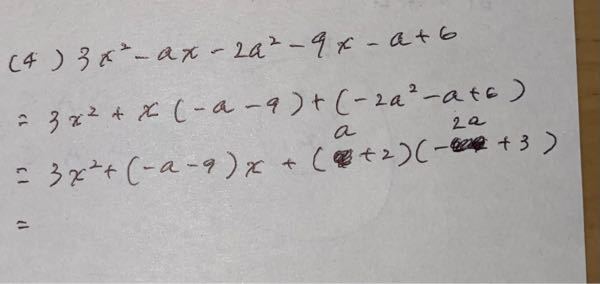 (4) 3x² - ax - 2a² - 9x - a + 6
= 3x² + x(-a - 9) + (-2a² - a + 6)
= 3x² + (-a - 9)x + (a + 2)(-2a + 3)
=